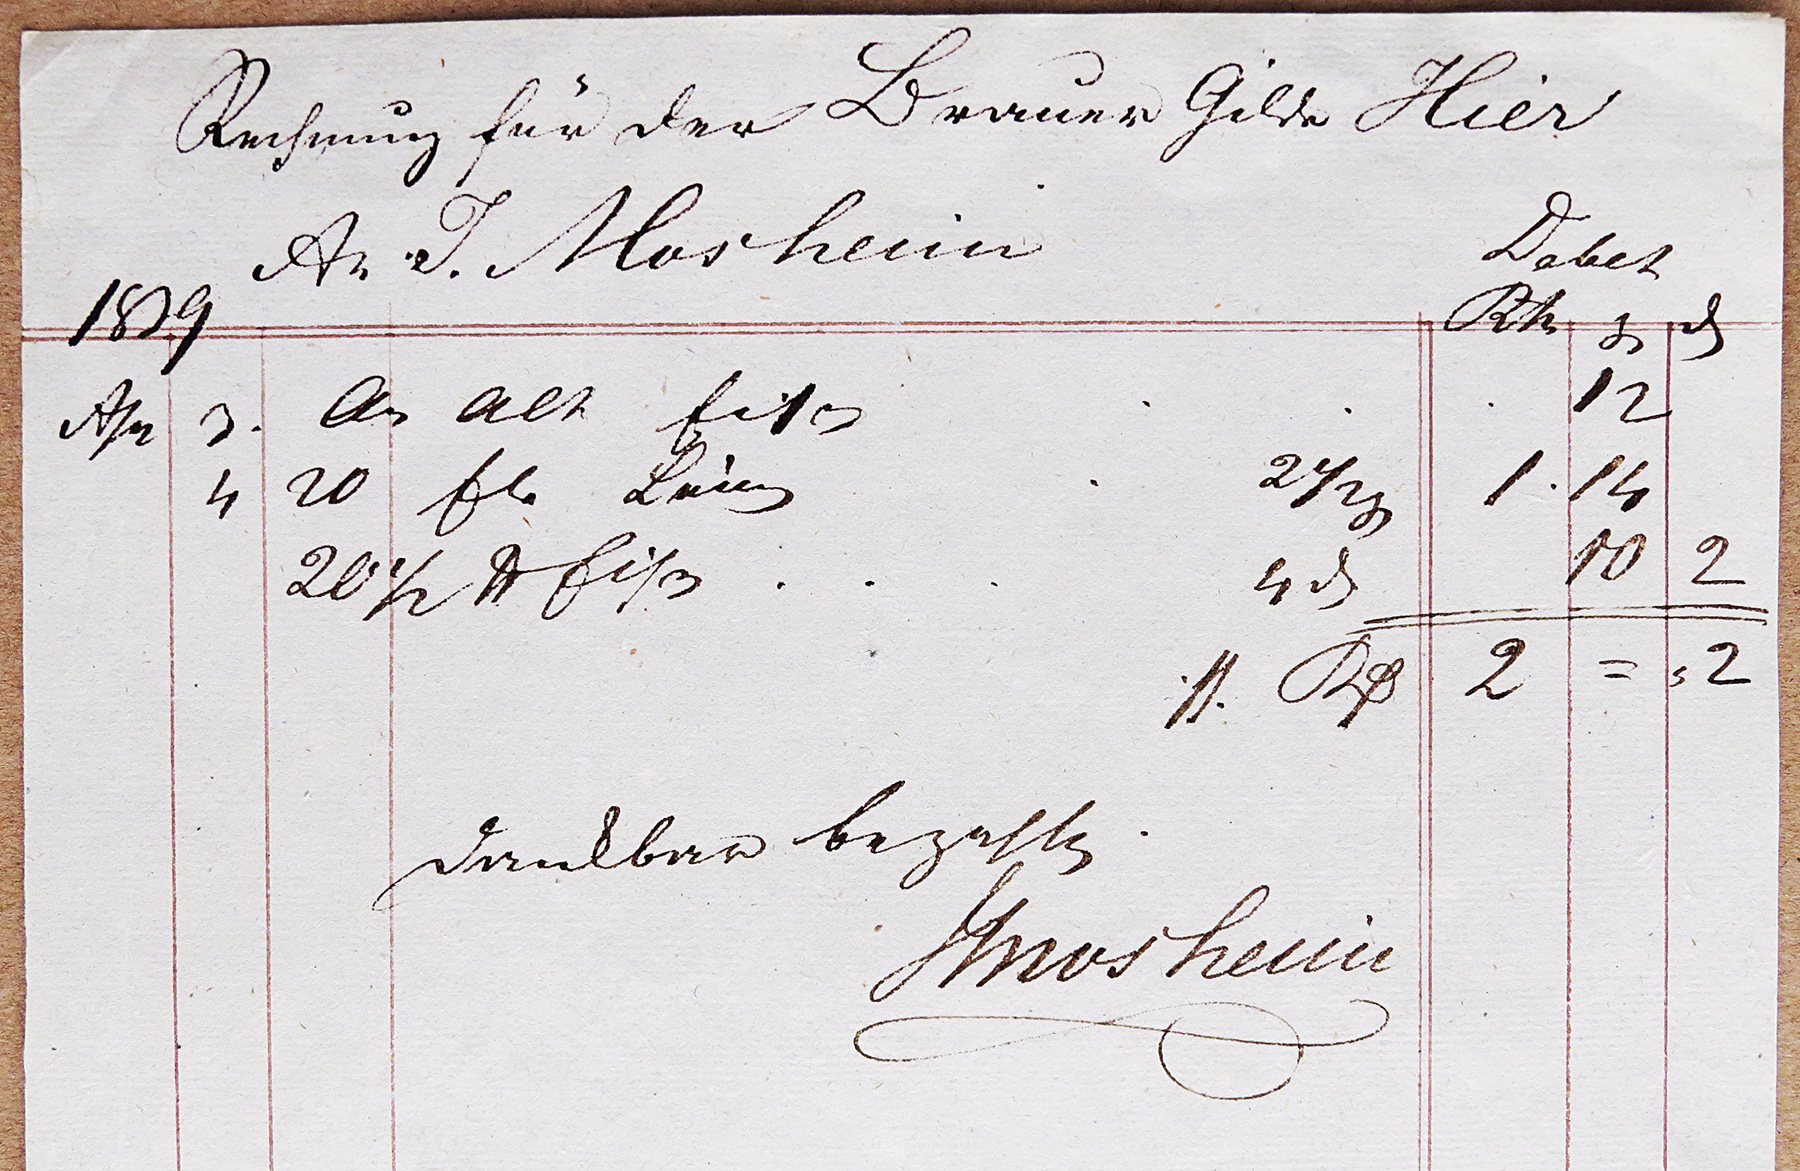 Rechnung für der Brauer Gilde Hier
An J. Mosheim
Debet
1839
Rth g d
Apr 3. An alt Eisen 12
4 20 Ele Leinen 2 1/2 g 1. 14
20 1/2 ℔ Eisen 4 d 10 2
2 = , 2
dankbar bezahlt
JMosheim